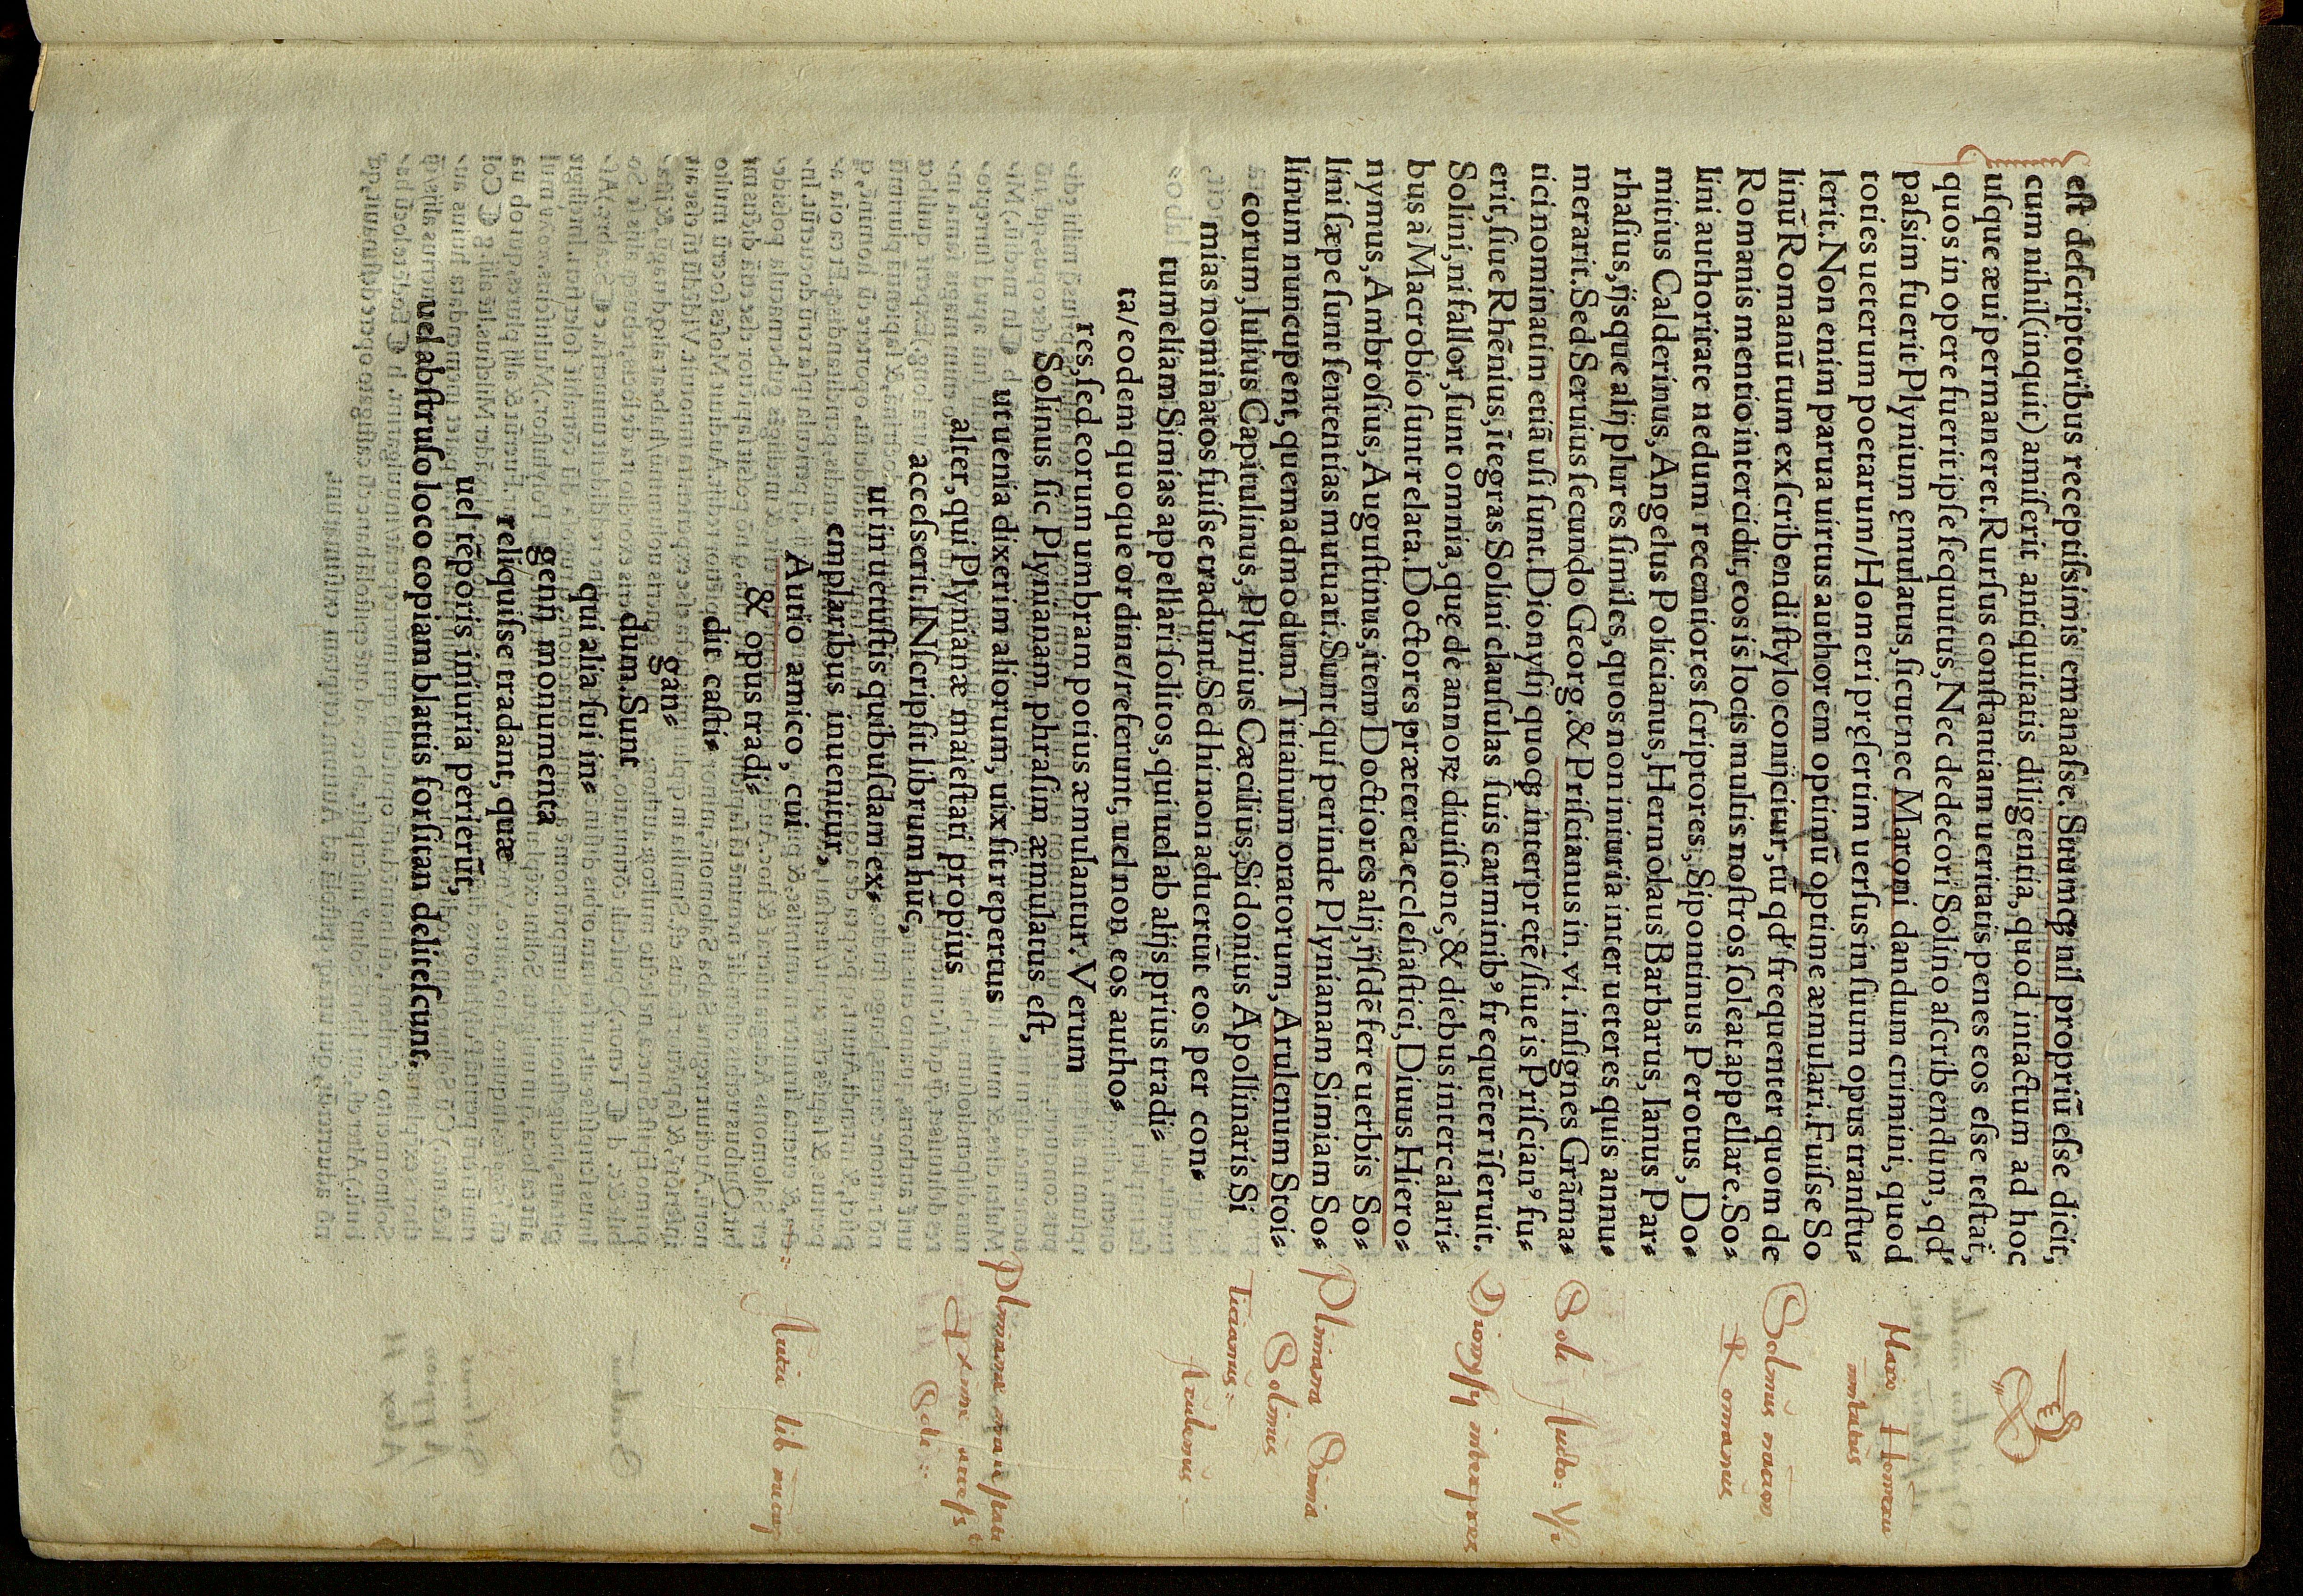 est descriptoribus receptissimis emanasse. Suumqꝫ nil propriū esse dicit,
cum nihil (inquit) amiserit antiquitatis diligentia, quod intactum ad hoc
usque æui permaneret. Rursus constantiam ueritatis penes eos esse testat̄,
quos in opere fuerit ipse sequutus, Nec dedecori Solino ascribendum, qd'
passim fuerit Plynium ęmulatus, sicut nec Maroni dandum crimini, quod
toties ueterum poetarum/Homeri pręsertim uersus in suum opus transtu⸗
lerit. Non enim parua uirtus authorem optimū optime æmulari. Fuisse So
linū Romanū tum exscribendi stylo conijcitur, tū qd' frequenter quom de
Romanis mentio intercidit, eos is locis multis nostros soleat appellare. So⸗
lini authoritate nedum recentiores scriptores, Sipontinus Perotus, Do⸗
mitius Calderinus, Angelus Policianus, Hermolaus Barbarus, Ianus Par⸗
rhasius, ijsque alij plures similes, quos non iniuria inter ueteres quis annu⸗
merarit. Sed Seruius secundo Georg. & Priscianus in .vi. insignes Grāma⸗
tici nominatim etiā usi sunt. Dionysij quoqꝫ interpretē/siue is Priscianꝰ fu⸗
erit, siue Rhēnius, ītegras Solini clausulas suis carminibꝰ frequēter īseruit.
Solini, ni fallor, sunt omnia, quę de annoꝝ diuisione, & diebus intercalari⸗
bus à Macrobio sunt relata. Doctores præterea ecclesiastici, Diuus Hiero⸗
nymus, Ambrosius, Augustinus, item Doctiores alij, ijsdē fere uerbis So⸗
lini sæpe sunt sententias mutuati. Sunt qui perinde Plynianam Simiam So⸗
linum nuncupent, quemadmodum Titianum oratorum, Arulenum Stoi⸗
corum, Iulius Capitulinus, Plynius Cæcilius, Sidonius Apollinaris Si
mias nominatos fuisse tradunt. Sed hi non aduertūt eos per con⸗
tumeliam Simias appellari solitos, qui uel ab alijs prius tradi⸗
ta/eodem quoque ordine/referunt, uel non eos autho⸗
res, sed eorum umbram potius æmulantur. Verum
Solinus sic Plynianam phrasim æmulatus est,
ut uenia dixerim aliorum, uix sit repertus
alter, qui Plynianæ maiestati propius
accesserit. INscripsit librum huc,
ut in uetustis quibusdam ex⸗
emplaribus inuenitur,
Autio amico, cui
& opus tradi⸗
dit casti⸗
gan⸗
dum. Sunt
qui alia sui in⸗
genij monumenta
reliquisse tradant, quæ
uel tēporis iniuria perierūt,
uel abstruso loco copiam blattis forsitan delitescunt.
Maro Homeru
imitatus
Solinus nacion
Romanus
Dionysij interpres
Pliniana Simia
Solinus
Ticianus
Arulenus